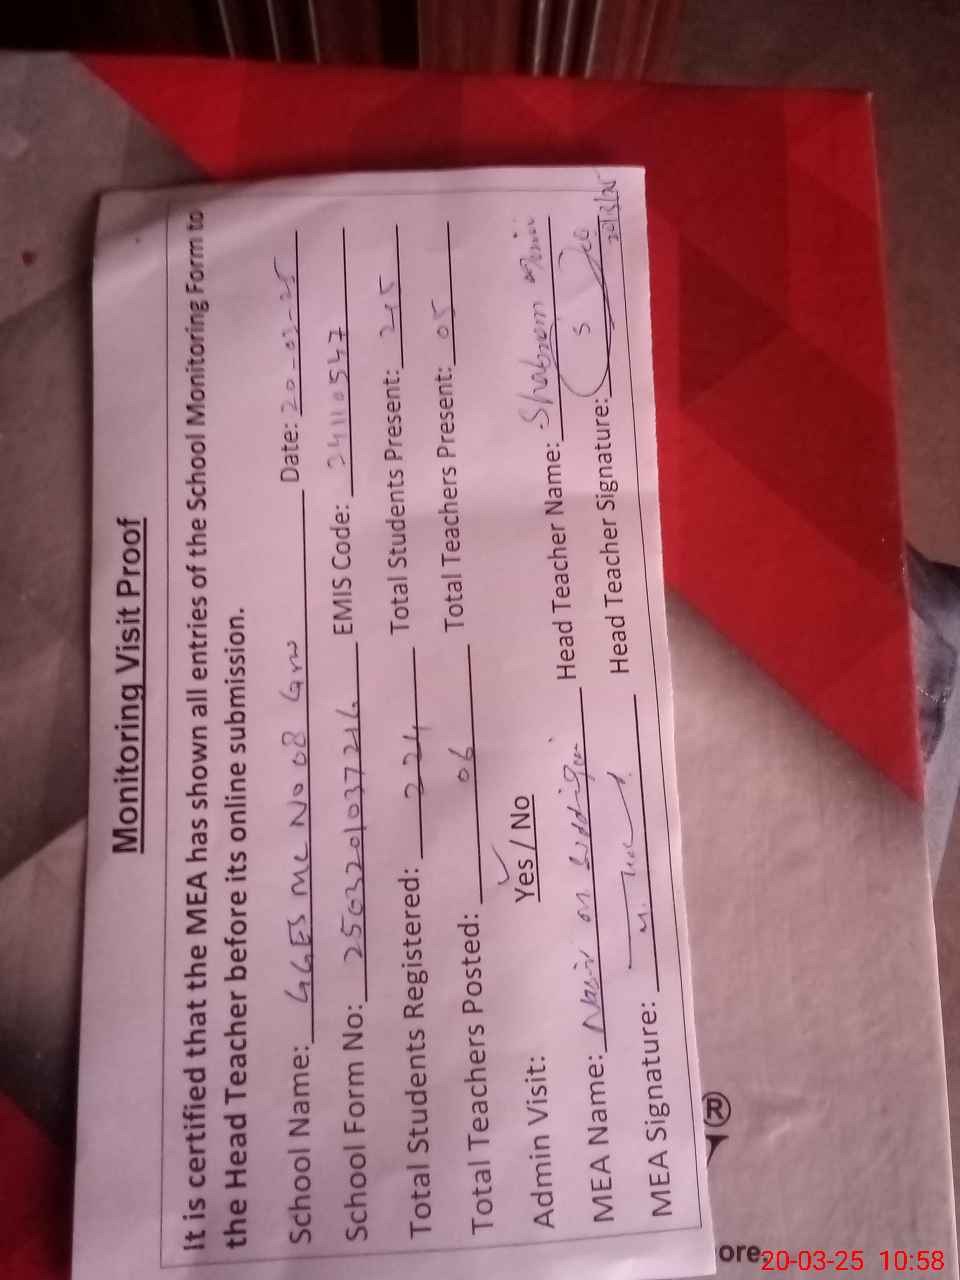 Monitoring Visit Proof
It is certified that the MEA has shown all entries of the School Monitoring Form to
the Head Teacher before its online submission.
School Name: GGES MC NO 08 Date: 20-03-25
School Form No: EMIS Code: 34110547
Total Students Registered: 224 Total Students Present:
Total Teachers Posted: 06 Total Teachers Present: 05
Admin Visit: Yes / No
MEA Name: Head Teacher Name: Shabnam
MEA Signature: Head Teacher Signature:
20/3/25
®
ore.
20-03-25 10:58